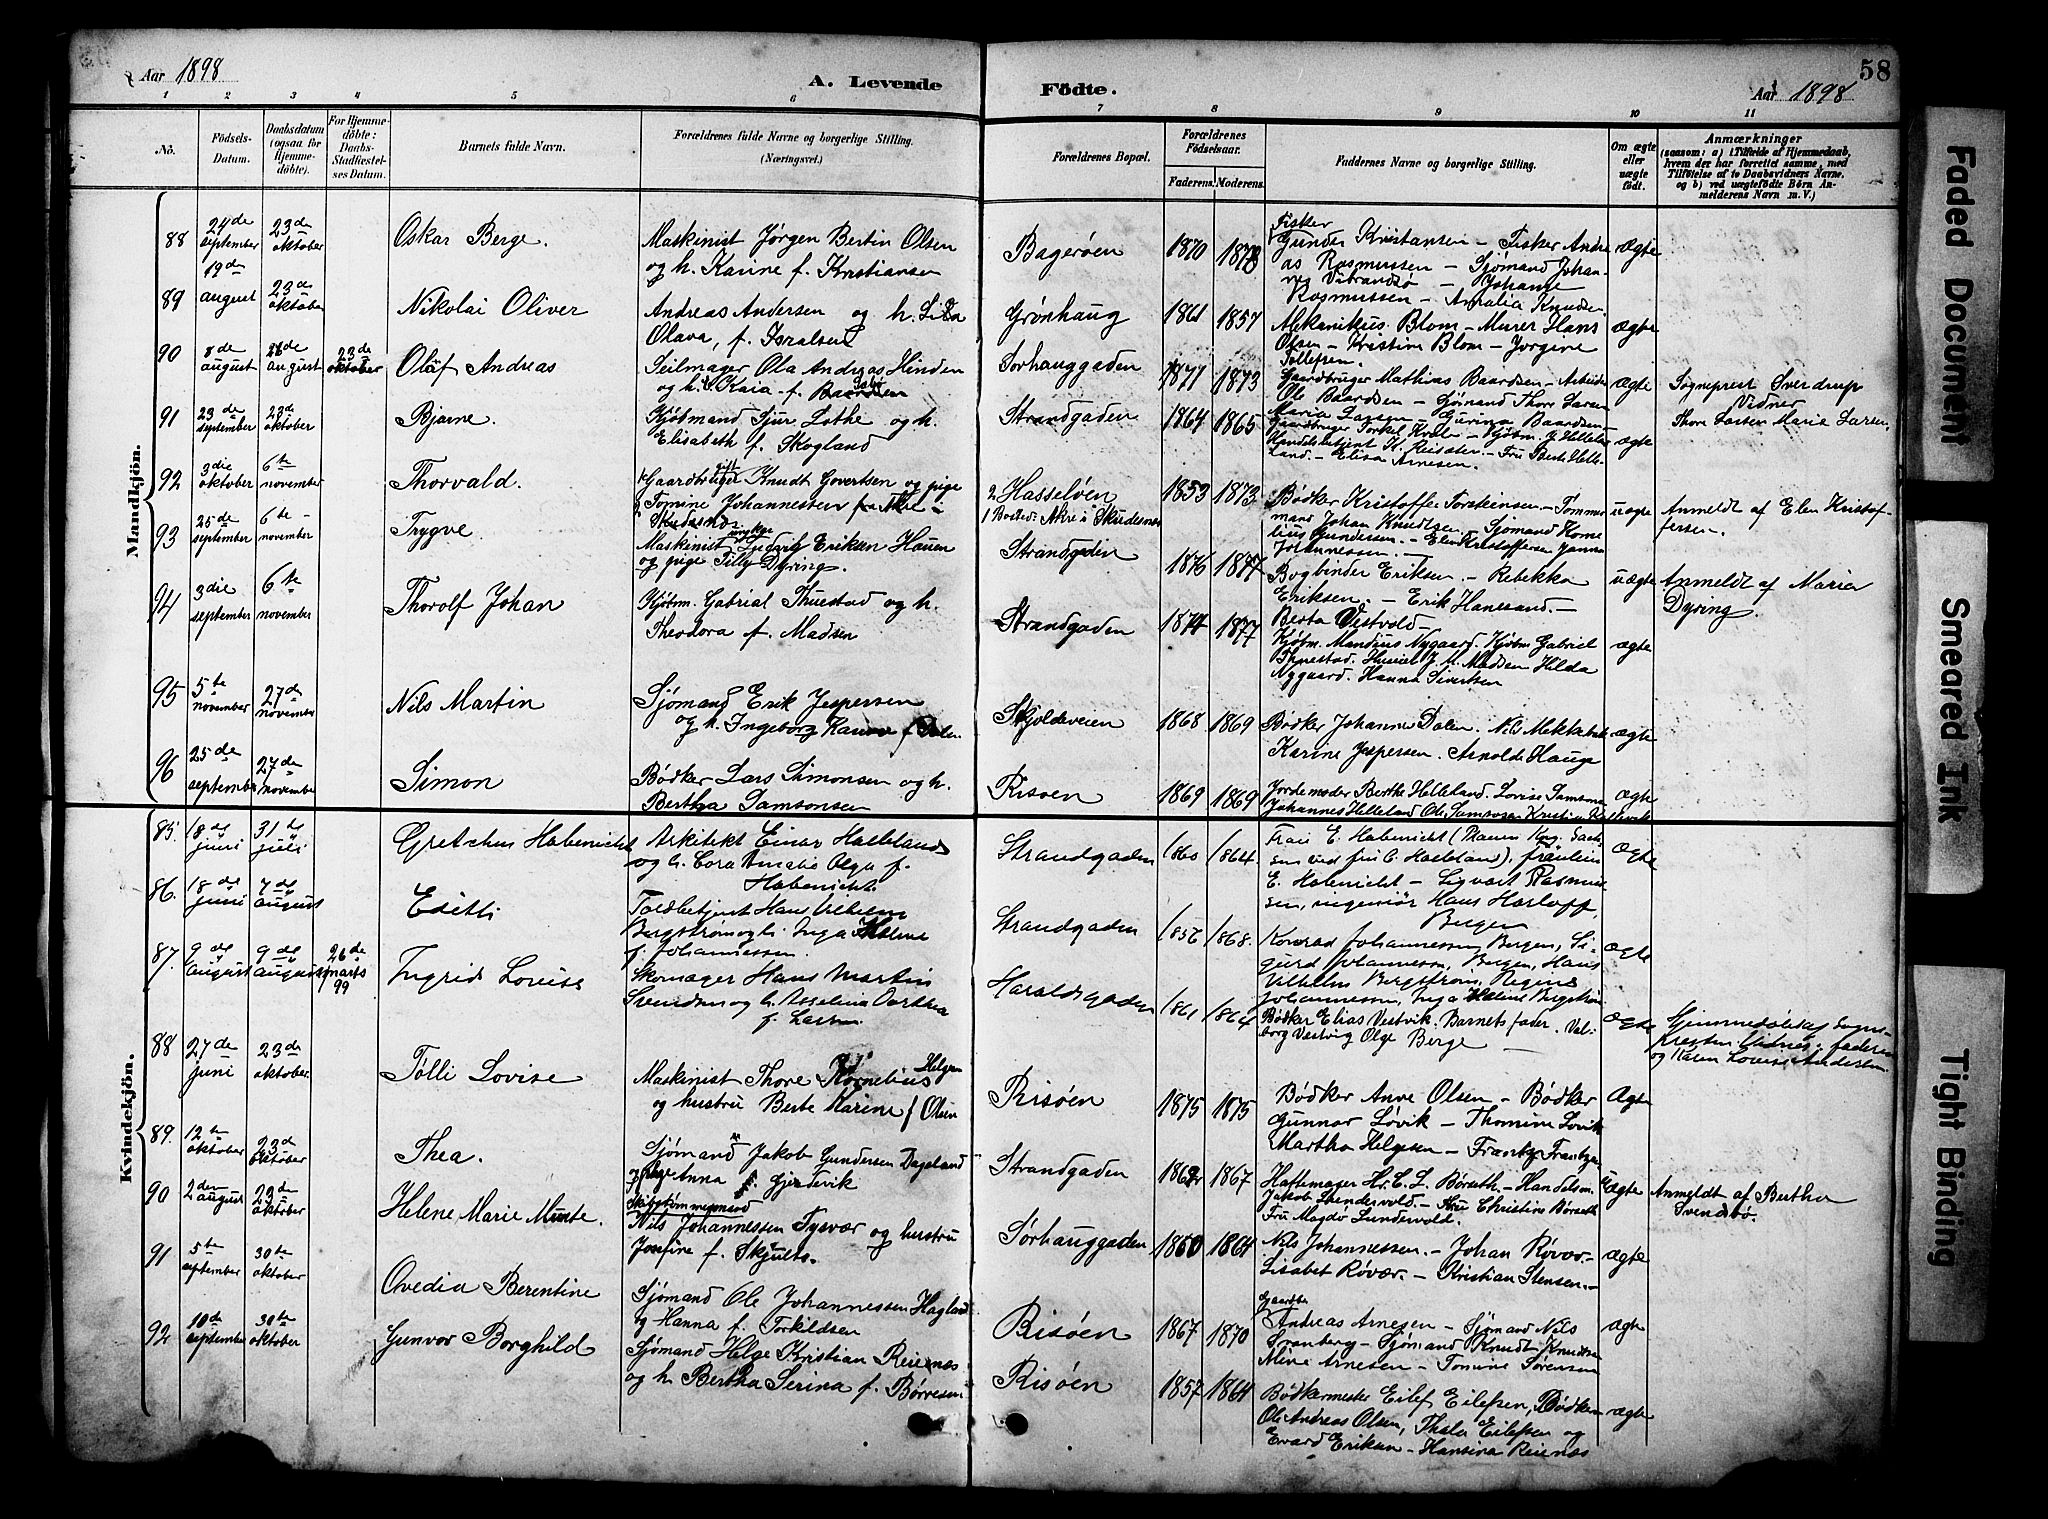 Aar 1898
A. Levende
Födte.
Aar 1898
58
1 2 3 4 5 6 7 8 9 10 11
No.
Födsels-
Datum.
Daabsdatum
(ogsaa for
Hjemme-
døbte).
For Hjemme-
døbte:
Daabs-
Stadfæstel-
ses Datum.
Barnets fulde Navn.
Forældrenes fulde Navne og borgerlige Stilling.
(Næringsvei.)
Forældrenes Bopæl.
Forældrenes
Födselsaar.
Faderens. Moderens.
Faddernes Navne og borgerlige Stilling.
Om ægte
eller
uægte
født.
Anmærkninger
(saasom: a) i Tilfælde af Hjemmedaab,
hvem der har forrettet samme, med
Tilføielse af to Daabsvidners Navne,
og b) ved uægtefødte Børn An-
melderens Navn m. V.)
Mandkjön.
88 24de september 23de oktober
Oskar Berge.
Maskinist Jørgen Bertin Olsen
og h. Karine f. Kristiansen
Bagerøen 1870 1878
Fisker
Gunder Kristansen - Fisker Andre
as Rasmussen - Sjømand Johan-
Rasmussen - Amalia Knudsen
ægte
89 19de august 23de oktober
Nikolai Oliver
Andreas Andersen og h.
Olava, f. Israelsen
Grønhaug 1861 1857
Mekanikus Blom - Murer Hans
Olsen - Kristine Blom - Jorgine
Tollefsen
ægte
90 8de august 28de august 23de oktober
Olaf Andreas
Seilmager Ola Andreas Hinden
og h. Kaia f. Baardsen
Sørhauggaden 1871 1873
Gaardbruger Mathias Baardsen - Arbeider
Ole Baardsen - Sjømand Thore Larsen
Maria Larsen - Gurina Baardsen
ægte
Sogneprest Sverdrup
Vidner
Thore Larsen Marie Larsen
91 23de september 23de oktober
Bjarne.
Kjøbmand Sjur Lothe og h.
Elisabeth f. Skogland
Strandgaden 1864 1865
Elisa Arnesen.
ægte
92 3die oktober 6te november
Thorvald.
Gaardbruger gift Knudt Govertsen og pige
Tomine Johannessen fra Akre i
Skudesnes
2 Hasseløen
1 Bosted: Akre i Skudesnes
1853 1873
Bødker Kristoffer Torsteinsen - Tømmer
mand Johan Knudsen - Sjømand Korne
lius Gundersen - Elen Kristoffersen Janna
Johannessen. -
uægte
Anmeldt af Elen Kristof-
fersen.
93 25de september 6te november
Trygve.
Maskinist ungkar Ludvig Eriksen Hauen
og pige Tilly Dyring.
Strandgaden 1876 1877
Bogbinder Eriksen. - Rebekka
Eriksen. - Erik Hanesand. -
Berta Vestvold -
uægte
Anmeldt af Maria
Dyring.
94 3die september 6te november
Thorolf Johan
Kjøbm. Gabrial Thuestad og h.
Theodora f. Madsen
Strandgaden 1874 1877
Kjøbm. Mandius Nygaard. Kjøbm Gabriel
Thuestad. J. M. Madsen Hilda
Nygaard. Hanna Sivertsen
ægte
95 5te november 27de november
Nils Martin
Sjømand Erik Jespersen
og h. Ingeborg Karine f Dalen
Skjoldeveien 1868 1869
Bødker Johannes Dalen. Nils
Karine Jespersen. Arnolde Hauge
ægte
96 25de september 27de november
Simon
Bødker Lars Simonsen og h.
Bertha Samsonsen
Risøen 1869 1869
Jordemoder Berthe Helleland. Lovise Samsons
Johannes Helleland Ole Samsonsen
ægte
Kvindekjön.
85. 18de juni 31te juli
Gretchen Habenicht
Arkitekt Einar Halleland
og h. Cora Amalie Olga f.
Habenicht.
Strandgaden 1860 1864.
E. Habenicht - Sigvart Rasmus
sen, ingeniør Hans Harloff,
Bergen
Ægte
86. 18de juni 7de august
Edith
Toldbetjent Hans Vilhelm
Bergstrøm og h. Inga Helene
f. Johannessen.
Strandgaden 1856 1868.
Konrad Johannessen, Bergen, Si-
gurd Johannessen, Bergen, Hans
Vilhelm Bergstrøm, Regine
Johannessen, Inga Helene Bergstrøm
ægte
87. 9de august 9de august 26de marts 99
Ingrid Lovise
Skomager Hans Martin
Svendsen og h. Asseline Dorthea
f. Larsen.
Haraldsgaden 1861 1864
Bødker Elias Vestvik. Barnets fader. Val-
borg Vestvig Olga Berge -
ægte
Hjemmedøbt af Sogne-
presten. Vidner: faderen
og Karen Lovise Andersen
88 27de juni 23de oktober
Tølli Lovise
Maskinist Thore Kornelius Helgesen
og hustru Berte Karine f Olsen
Risøen 1875 1875
Bødker Arne Olsen - Bødker
Gunnar Løvik - Thomine Løvik
Martha Helgesen -
Ægte
89. 12te oktober 23de oktober
Thea.
Sjømand Jakob Gundersen Dageland
og pige Anna Gjerdevik
Strandgaden 1862 1867
Hattemager Hr. E. L. Børseth - Handelsm.
Jakob Lundervold - Fru Christine Børseth
Fru Magda Lundevold.
Uægte
Anmeldt af Berthe
Svendsbø.
90 2den august 23de oktober
Helene Marie Munte.
Skibstømmermand
Nils Johannessen Tysvær og hustru
Josefine f. Skjults.
Sørhauggaden 1860 1864
Nils Johannessen. - Johan Røvær. -
Lisabet Røvær. - Kristian Stensen. -
ægte
91 5te september 30te oktober
Ovedia Berentine
Sjømand Ole Johannessen Hagland
og Hanna f. Torkildsen
Risøen 1867 1870
Gaardbr
Andreas Arnesen - Sjømand Nils
Granberg - Sjømand Knudt Knudsen
Mine Arnesen - Tomine Sørensen
ægte
92 10de september 30te oktober
Gunvor Borghild
Sjømand Helge Kristian Reienæs
og h. Bertha Serina f. Børresen
Risøen 1857 1864
Bødkermester Eilef Eilefsen, Bødker
Ole Andreas Olsen, Thale Eilefsen og
Evard Eriksen - Hansina Reienæs
ægte
Faded Document
Smeared Ink
Tight Binding